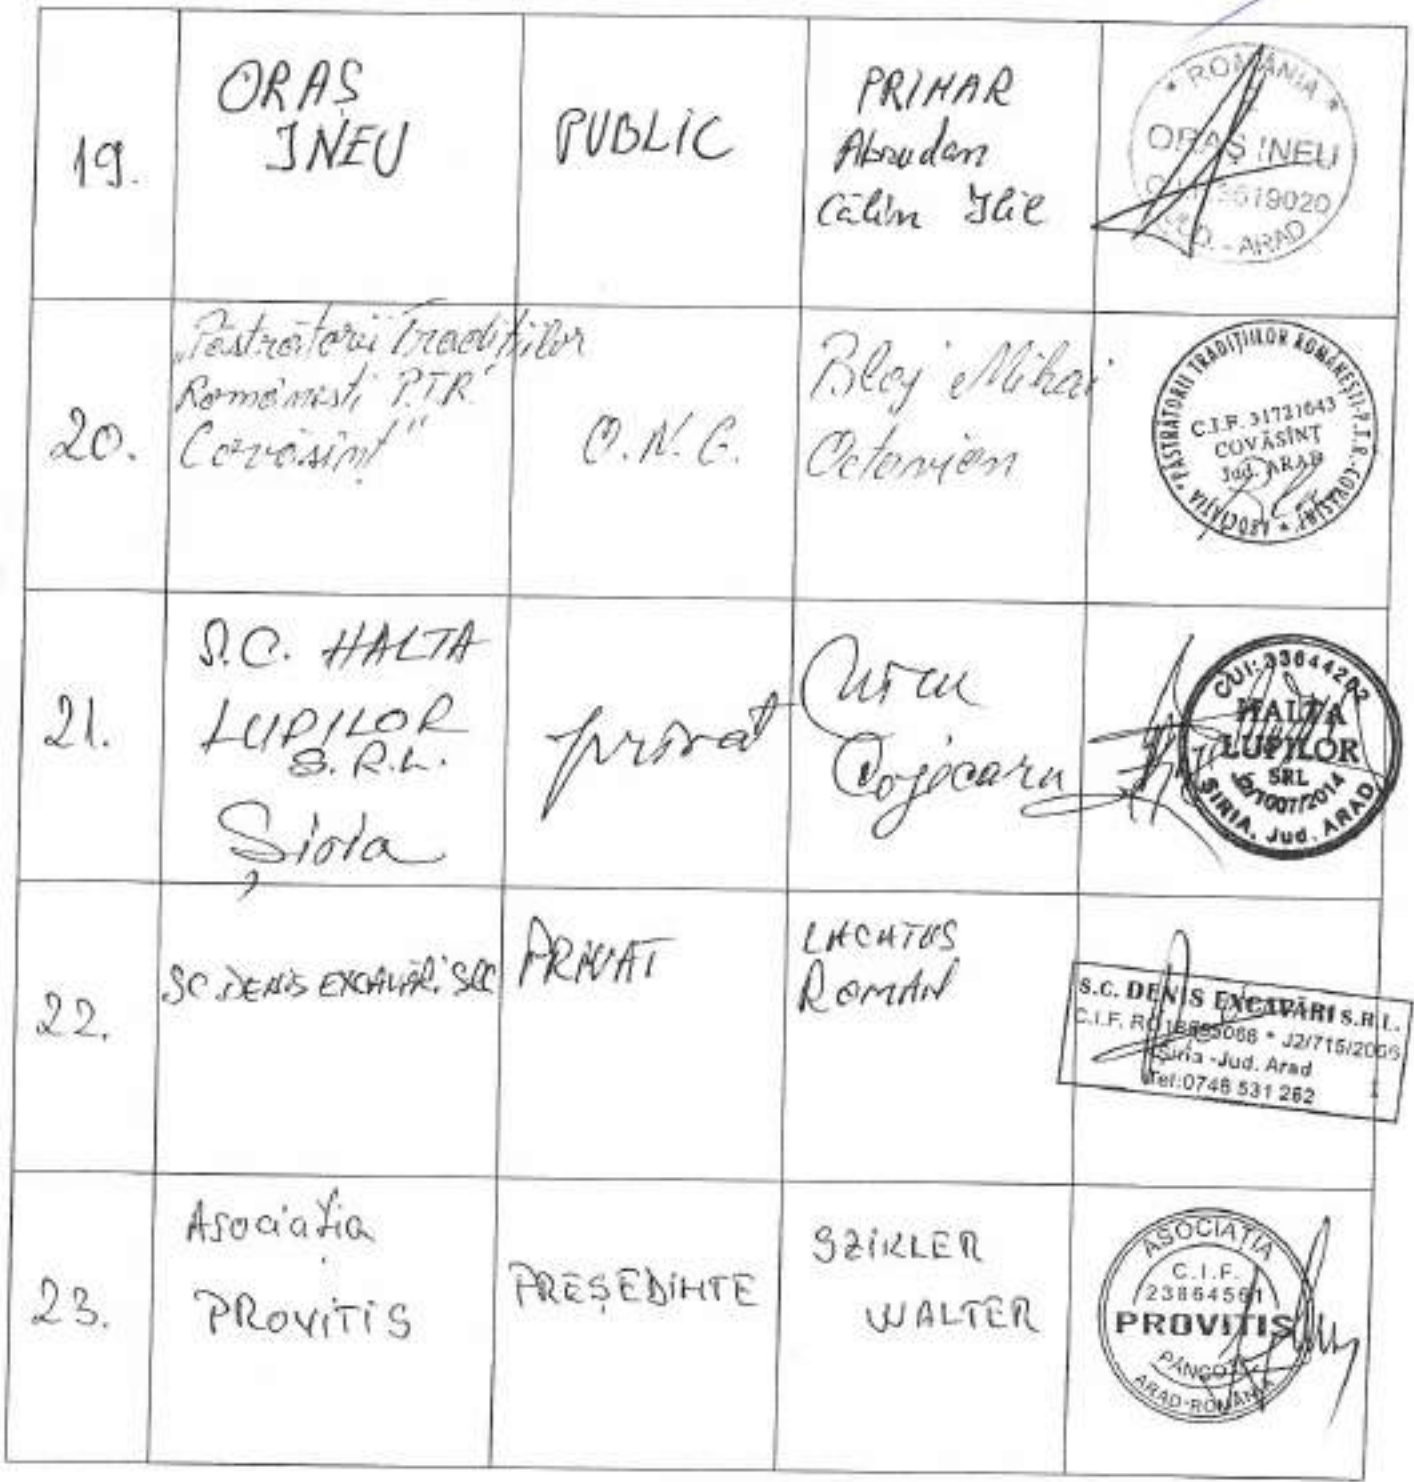 19.
ORAȘ
INEU
PUBLIC
PRIMAR
Abrudan
Călin Ilie
* ROMÂNIA *
ORAȘ INEU
3619020
JUD. - ARAD
20.
„Păstrătorii Tradițiilor
Românești P.T.R.
Covăsînț"
O.N.G.
Bloj Mihai
Octavian
ASOCIAȚIA "PĂSTRĂTORII TRADIȚIILOR ROMÂNEȘTI-P.T.R.-COVĂSÎNȚ" *
C.I.F. 31721643
COVĂSÎNȚ
Jud. ARAD
21.
S.C. HALTA
LUPILOR
S.R.L.
Șiria
privat
Cojocaru
CUI: 33644262
HALTA
LUPILOR
SRL
J2/1007/2014
ȘIRIA, Jud. ARAD
22.
SC DENIS EXCAVĂRI SRL
PRIVAT
LĂCĂTUȘ
ROMAN
S.C. DENIS EXCAVĂRI S.R.L.
C.I.F. RO * J2/715/2006
Șiria - Jud. Arad
Tel: 0748 531 262
1
23.
Asociația
PROVITIS
PREȘEDINTE
SZIKLER
WALTER
ASOCIAȚIA
C.I.F.
23864561
PROVITIS
PÂNCOTA
ARAD-ROMÂNIA